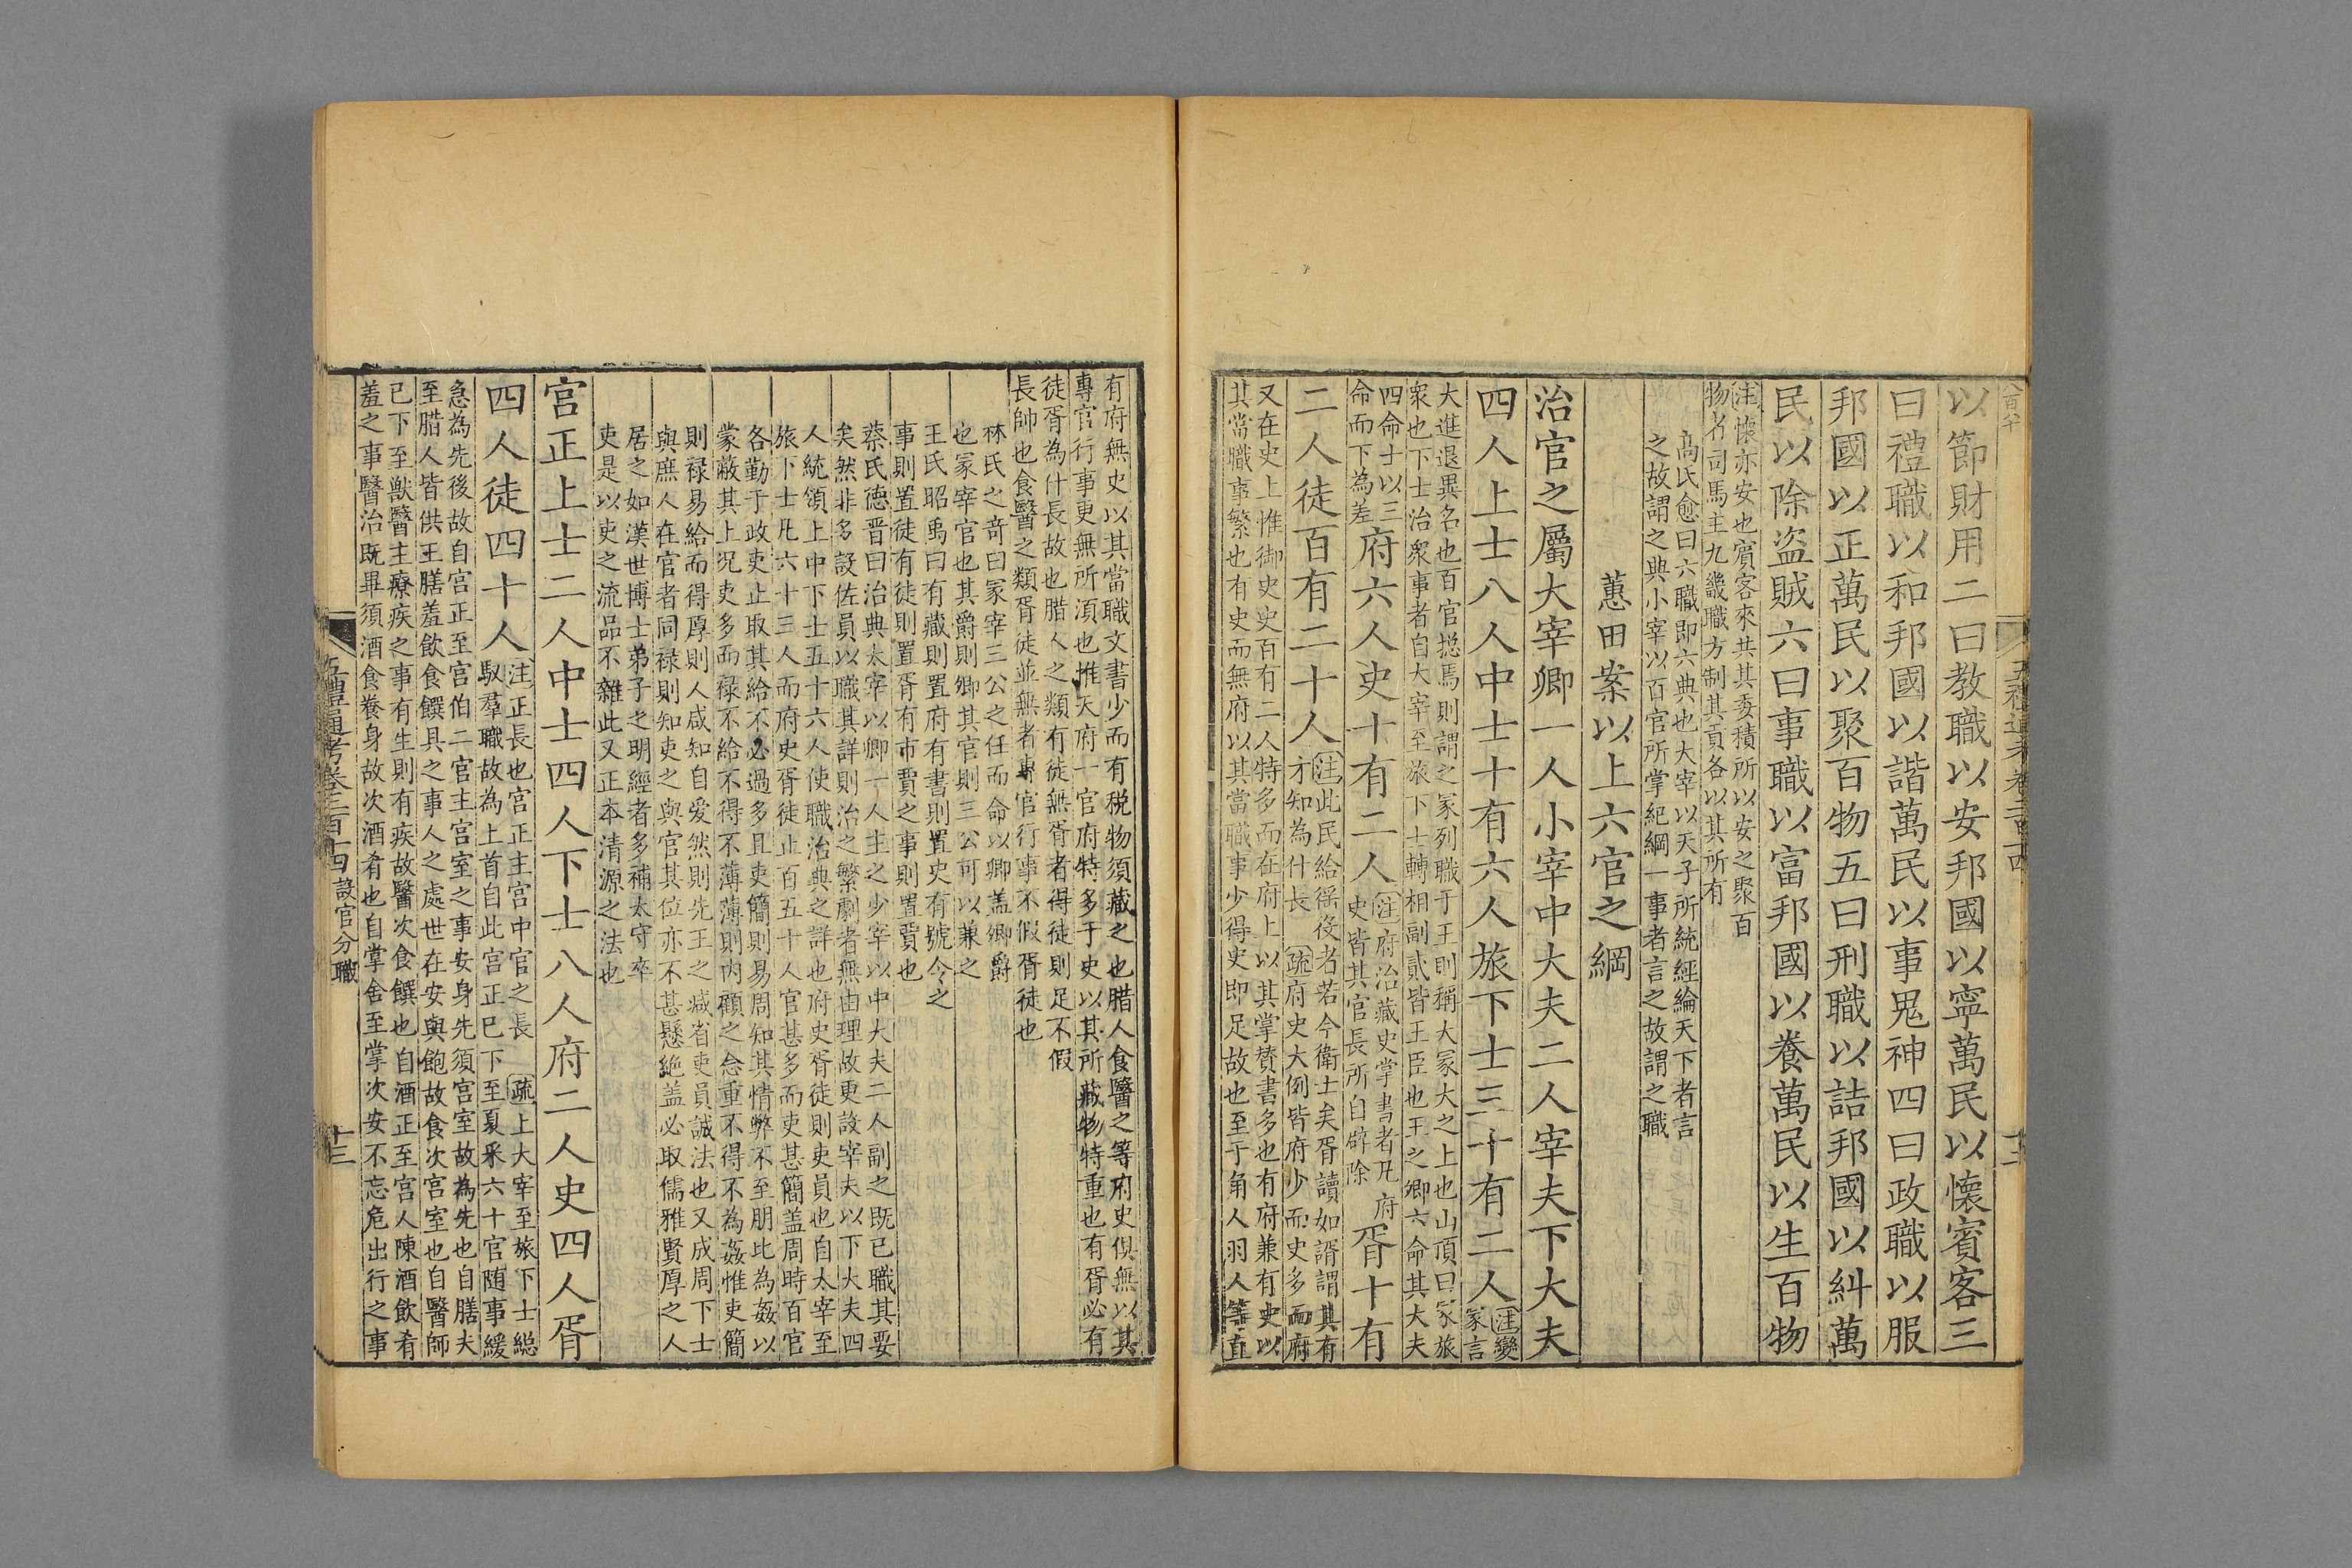 以節財用二曰教職以安邦國以寧萬民以懷賓客三
曰禮職以和邦國以諧萬民以事鬼神四曰政職以服
邦國以正萬民以聚百物五曰刑職以詰邦國以糾萬
民以除盜賊六曰事職以富邦國以養萬民以生百物
注懷亦安也賓客來共其委積所以安之聚百
物者司馬主九畿職方制其貢各以其所有
高氏愈曰六職即六典也大宰以天子所統經綸天下者言
之故謂之典小宰以百官所掌紀綱一事者言之故謂之職
蕙田案以上六官之綱
治官之屬大宰卿一人小宰中大夫二人宰夫下大夫
四人上士八人中士十有六人旅下士三十有二人
注變
冢言
大進退異名也百官揔焉則謂之冢列職于王則稱大冢大之上也山頂曰冢旅
衆也下士治衆事者自大宰至旅下士轉相副貳皆王臣也王之卿六命其大夫
四命士以三
命而下為差
府六人史十有二人
注府治藏史掌書者凡府
史皆其官長所自辟除
胥十有
二人徒百有二十人
注此民給徭役者若今衛士矣胥讀如諝謂其有
才知為什長 疏府史大例皆府少而史多而府
又在史上惟御史史百有二人特多而在府上以其掌贊書多也有府兼有史以
其當職事繁也有史而無府以其當職事少得史即足故也至于角人羽人等直
有府無史以其當職文書少而有稅物須藏之也腊人食醫之等府史俱無以其
專官行事更無所湏也惟天府一官府特多于史以其所藏物特重也有胥必有
徒胥為什長故也腊人之類有徒無胥者得徒則足不假
長帥也食醫之類胥徒並無者專官行事不假胥徒也
林氏之奇曰冢宰三公之任而命以卿盖卿爵
也冢宰官也其爵則卿其官則三公可以兼之
王氏昭禹曰有藏則置府有書則置史有號令之
事則置徒有徒則置胥有市賈之事則置賈也
蔡氏德晋曰治典太宰以卿一人主之少宰以中大夫二人副之既已職其要
矣然非多設佐員以職其詳則治之繁劇者無由理故更設宰夫以下大夫四
人統領上中下士五十六人使職治典之詳也府史胥徒則吏員也自太宰至
旅下士凡六十三人而府史胥徒止百五十人官甚多而吏甚簡盖周時百官
各勤于政吏止取其給不必過多且吏簡則易周知其情弊不至朋比為姦以
蒙蔽其上况吏多而祿不給不得不薄薄則内顧之念重不得不為姦惟吏簡
則祿易給而得厚則人咸知自爱然則先王之减省吏員誠法也又成周下士
與庶人在官者同祿則知吏之與官其位亦不甚懸絶盖必取儒雅賢厚之人
居之如漢世博士弟子之明經者多補太守卒
吏是以吏之流品不雜此又正本清源之法也
宮正上士二人中士四人下士八人府二人史四人胥
四人徒四十人
注正長也宮正主宮中官之長 疏上大宰至旅下士總
馭羣職故為上首自此宮正已下至夏采六十官随事緩
急為先後故自宮正至宮伯二官主宮室之事安身先須宮室故為先也自膳夫
至腊人皆供王膳羞飲食饌具之事人之處世在安與飽故食次宮室也自醫師
已下至獸醫主療疾之事有生則有疾故醫次食饌也自酒正至宮人陳酒飲肴
羞之事醫治既畢須酒食養身故次酒肴也自掌舍至掌次安不忘危出行之事
五禮通考卷二百十四 設官分職
十三